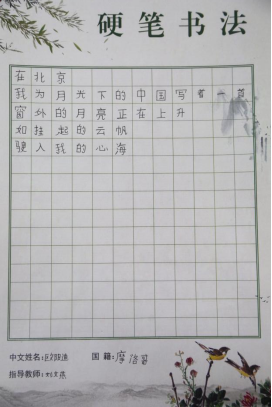 硬笔书法
在北京
我为月光下的中国写着一首
窗外的月亮正在上升
如挂起的云帆
驶入我的心海
中文姓名: 国籍:摩洛哥
指导教师: